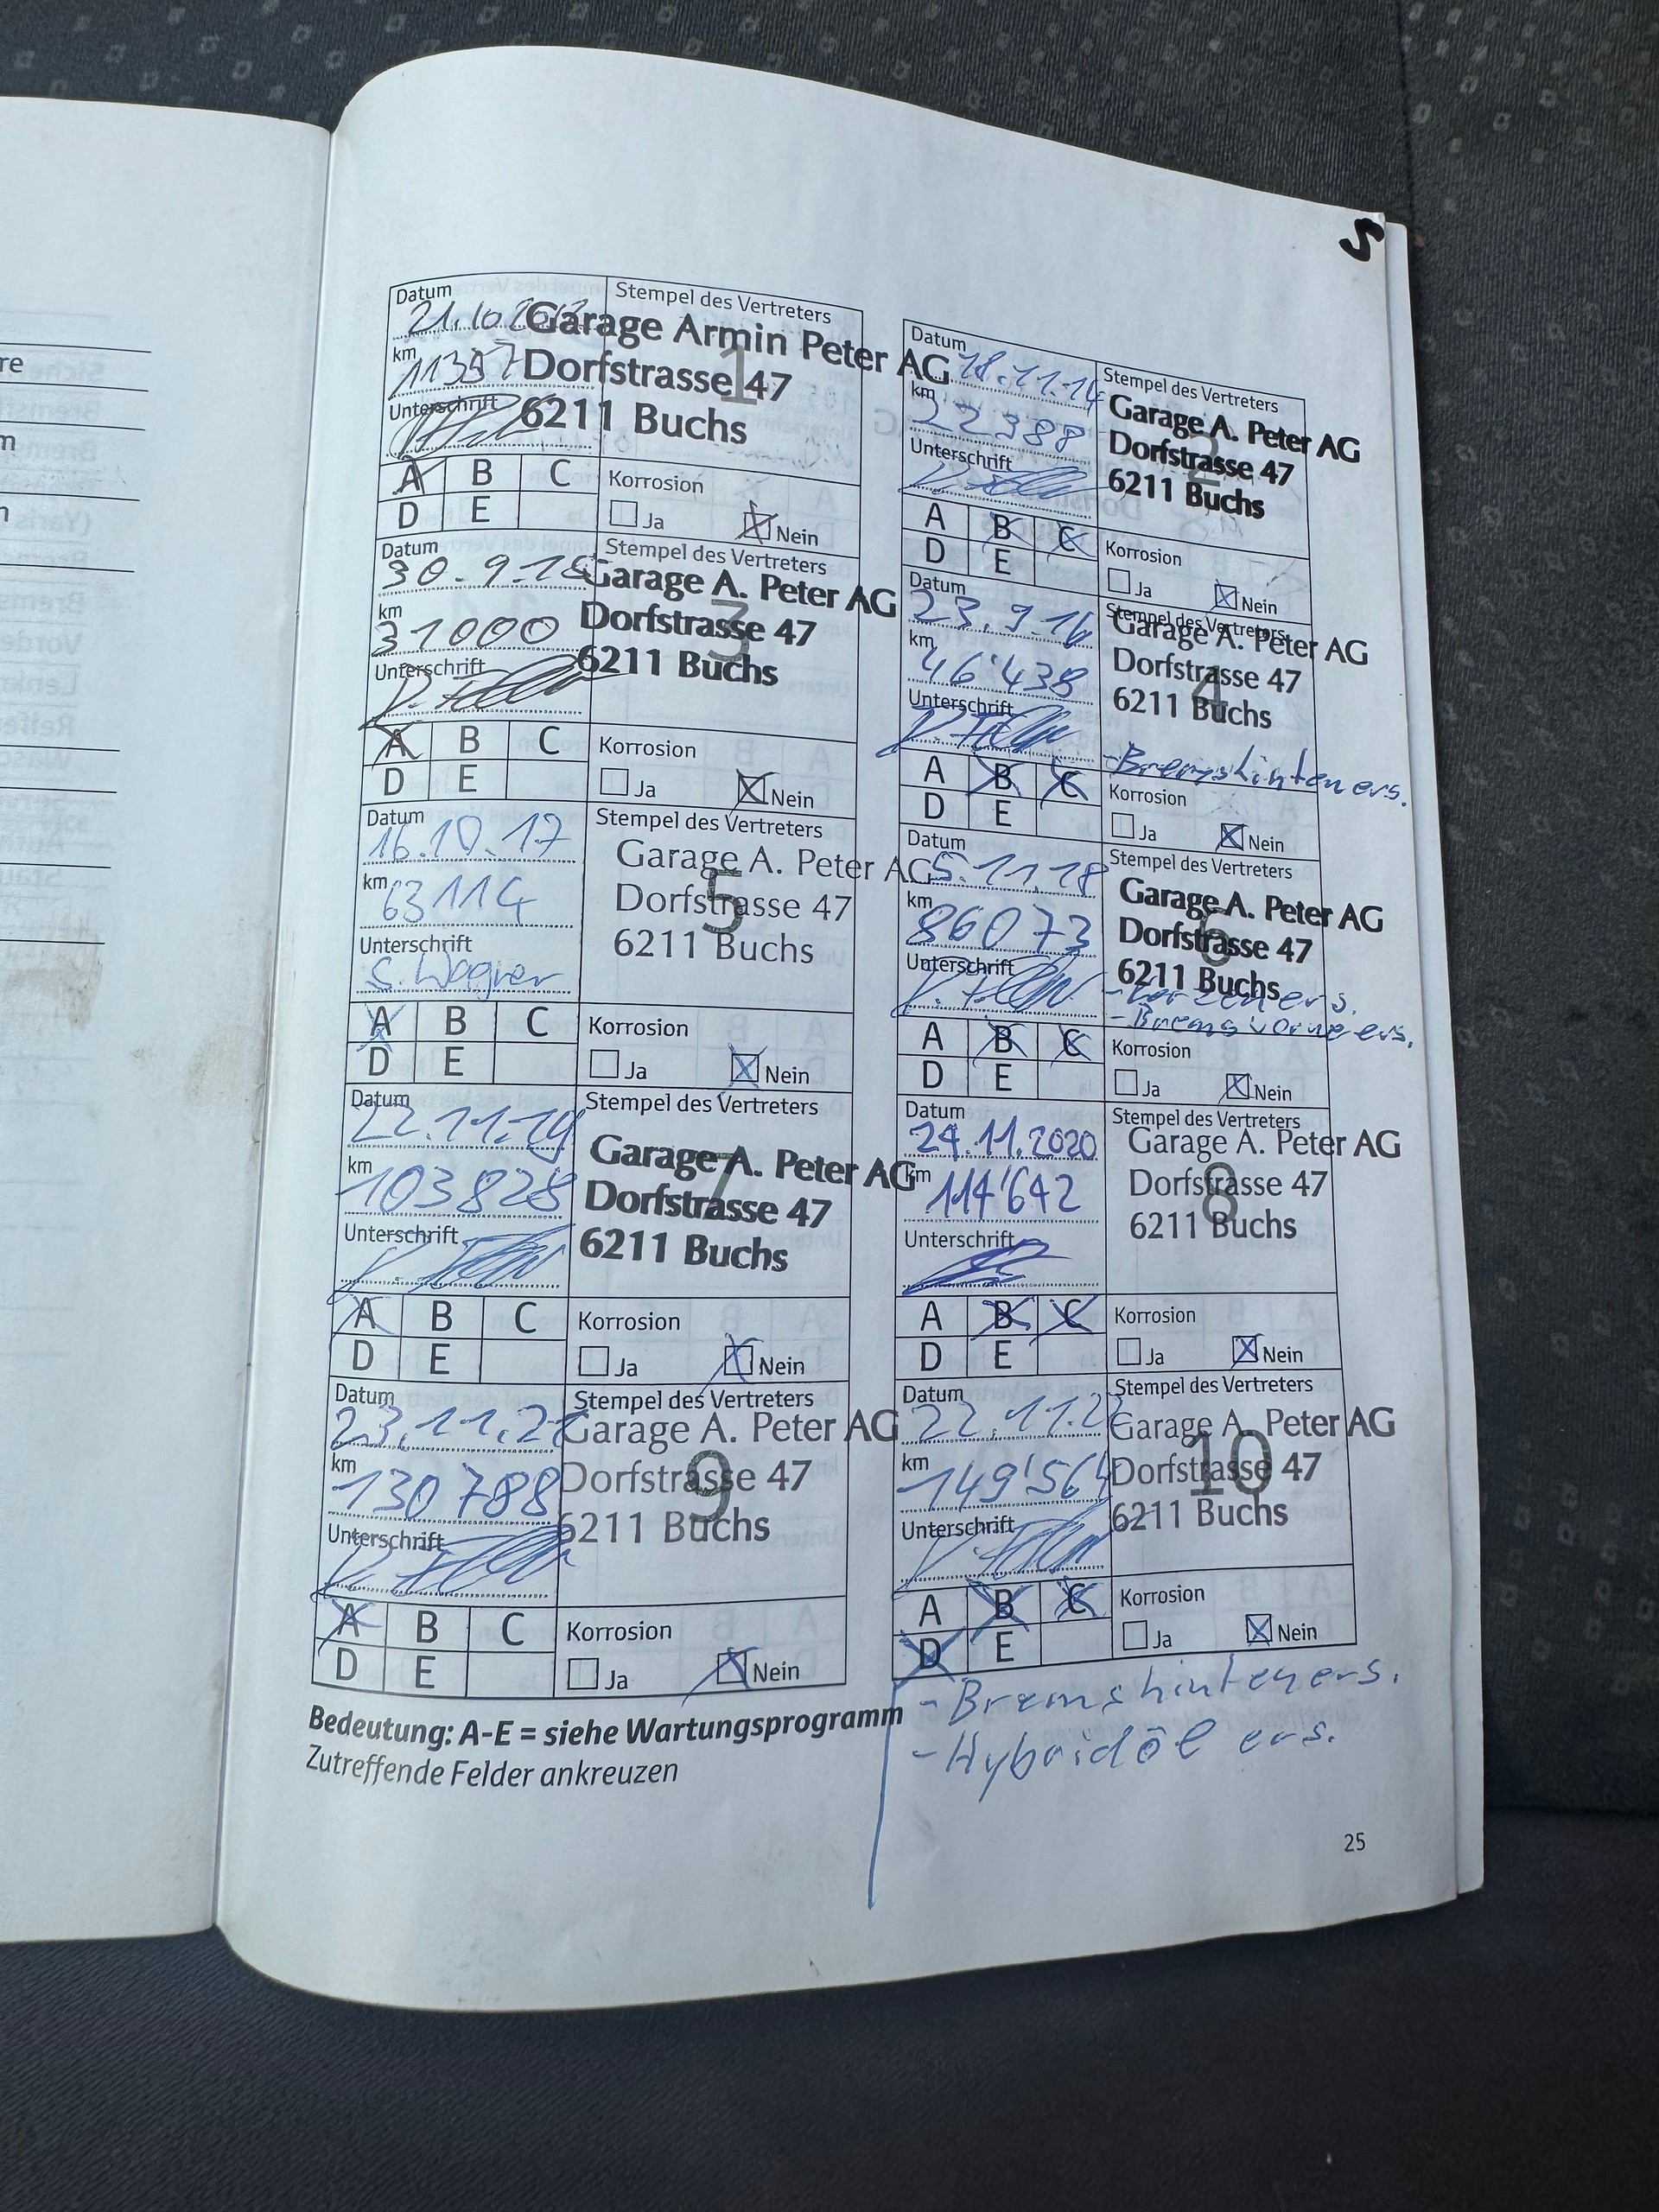 5
re
m
n
Datum
21.10.
Stempel des Vertreters
1
Garage Armin Peter AG
km
11357
Dorfstrasse 47
Unterschrift
6211 Buchs
A B C
D E
Korrosion
Ja Nein
Datum
18.11.14
Stempel des Vertreters
2
km
22388
Garage A. Peter AG
Dorfstrasse 47
Unterschrift
6211 Buchs
A B C
D E
Korrosion
Ja Nein
Datum
30.9.
Stempel des Vertreters
3
Garage A. Peter AG
km
31000
Dorfstrasse 47
Unterschrift
6211 Buchs
A B C
D E
Korrosion
Ja Nein
Datum
23.9.16
Stempel des Vertreters
4
Garage A. Peter AG
km
46'438
Dorfstrasse 47
Unterschrift
6211 Buchs
- Brems hinten ers.
A B C
D E
Korrosion
Ja Nein
Datum
16.10.17
Stempel des Vertreters
5
Garage A. Peter AG
km
63114
Dorfstrasse 47
6211 Buchs
Unterschrift
S. Wagner
A B C
D E
Korrosion
Ja Nein
Datum
5.11.18
Stempel des Vertreters
6
Garage A. Peter AG
km
86073
Dorfstrasse 47
Unterschrift
6211 Buchs
- Kerzen ers.
- Brems vorne ers.
A B C
D E
Korrosion
Ja Nein
Datum
22.11.19
Stempel des Vertreters
7
Garage A. Peter AG
km
103828
Dorfstrasse 47
Unterschrift
6211 Buchs
A B C
D E
Korrosion
Ja Nein
Datum
24.11.2020
Stempel des Vertreters
8
Garage A. Peter AG
km
114'642
Dorfstrasse 47
6211 Buchs
Unterschrift
A B C
D E
Korrosion
Ja Nein
Datum
23.11.21
Stempel des Vertreters
9
Garage A. Peter AG
km
130788
Dorfstrasse 47
Unterschrift
6211 Buchs
A B C
D E
Korrosion
Ja Nein
Datum
22.11.2
Stempel des Vertreters
10
Garage A. Peter AG
km
149'564
Dorfstrasse 47
Unterschrift
6211 Buchs
A B C
D E
Korrosion
Ja Nein
- Brems hinten ers.
- Hybridöl ers.
Bedeutung: A-E = siehe Wartungsprogramm
Zutreffende Felder ankreuzen
25